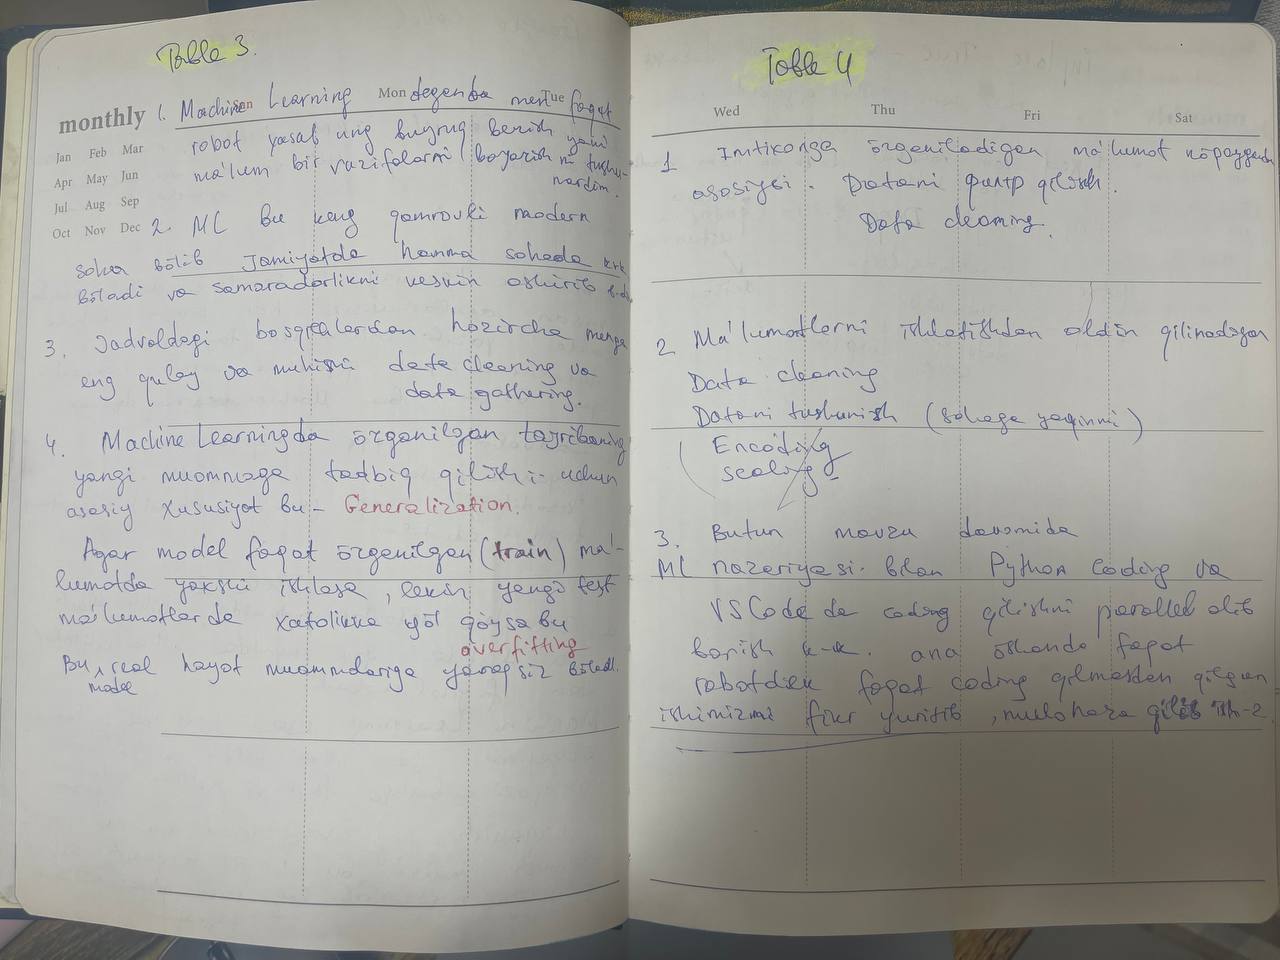 Table 3.
monthly
Sun Mon Tue
Jan Feb Mar
Apr May Jun
Jul Aug Sep
Oct Nov Dec
1. Machine Learning deganda men faqat
robot yasab ung buyruq berish yani
ma'lum bir vazifalarni bajarish ni tushu-
nardim.
2. ML bu keng qamrovli modern
soha bo'lib jamiyatda hamma sohada k-k
bo'ladi va samaradorlikni keskin oshirib
3. Jadvaldagi bosqichlardan hozircha menga
eng qulay va muhimi data cleaning va
data gathering.
4. Machine Learningda o'rganilgan tajribaning
yangi muommoga tadbiq qilish: uchun
asosiy xususiyat bu - Generalization.
Agar model faqat o'rganilgan (train) ma'-
lumotda yaxshi ishlasa, lekin yangi test
ma'lumotlarda xatolikka yo'l qo'ysa bu
overfitting
Bu model real hayot muommolariga yaroqsiz bo'ladi.
Table 4
Wed Thu Fri Sat
1 Imtixonga o'rganiladigan ma'lumot
asosiysi. Datani фильтр qilish.
Data cleaning.
2 Ma'lumotlarni ishlatishdan oldin qilinadigan
Data cleaning
Datani tushunish (sohaga yaqinmi)
Encoding
scaling
3. Butun mavzu davomida
ML nazariyasi bilan Python coding va
VS Code da coding qilishni parallel olib
borish k-k. ana o'shanda faqat
robotdek faqat coding qilmasdan qilgan
ishimizni fikr yuritib, mulohaza qilib